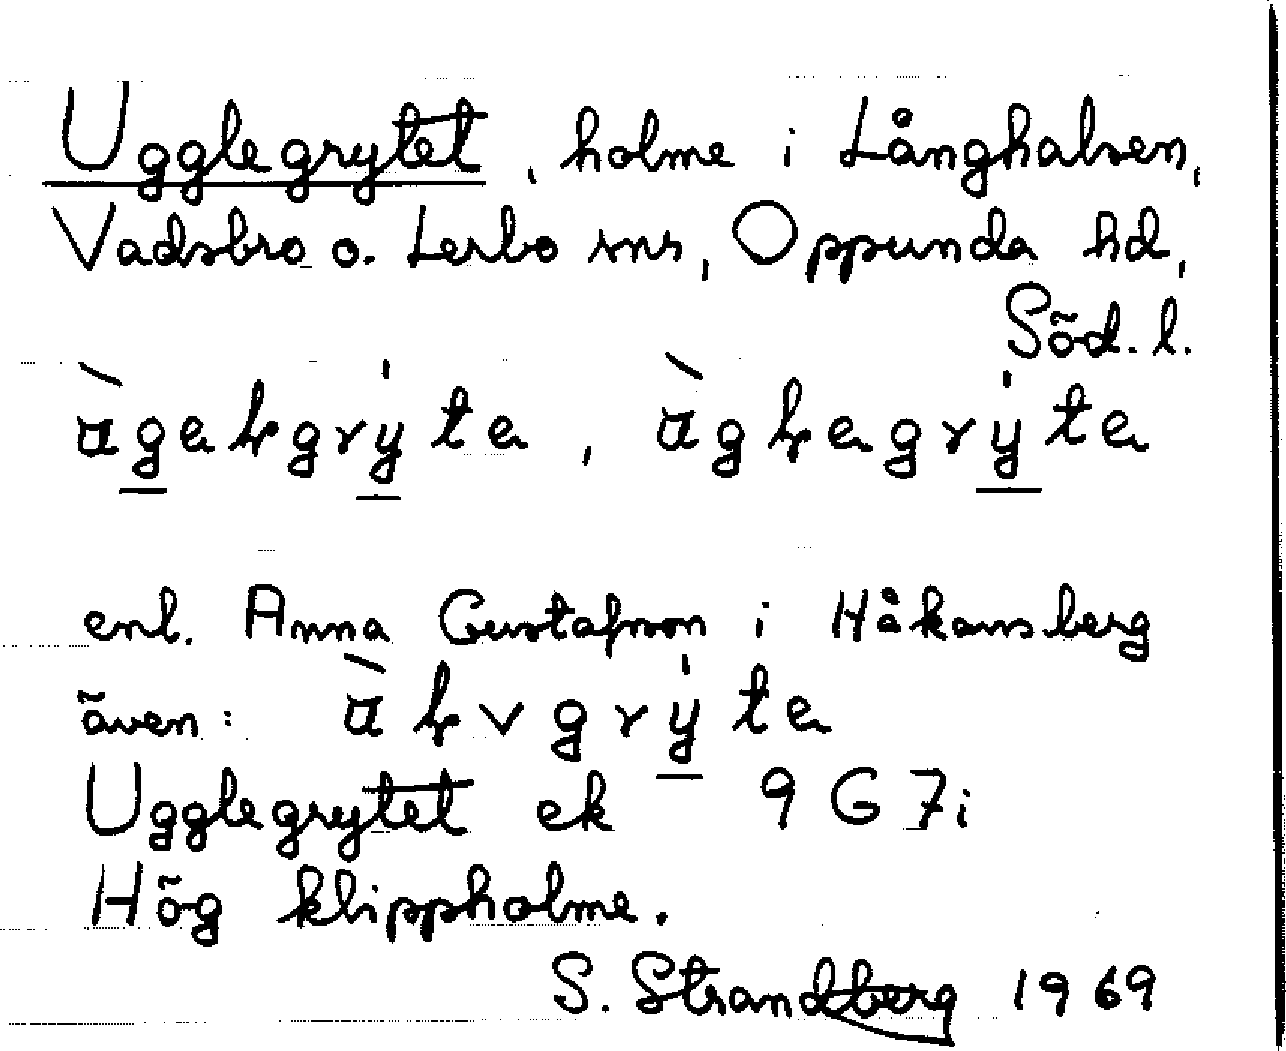 Ugglegrytet, holme i Långhalsen,
Vadsbro o. Lerbo snr, Oppunda hd,
Söd. l.
enl. Anna Gustafsson i Håkansberg
även:
Ugglegrytet ek 9 G 7i
Hög klippholme.
S. Strandberg 1969